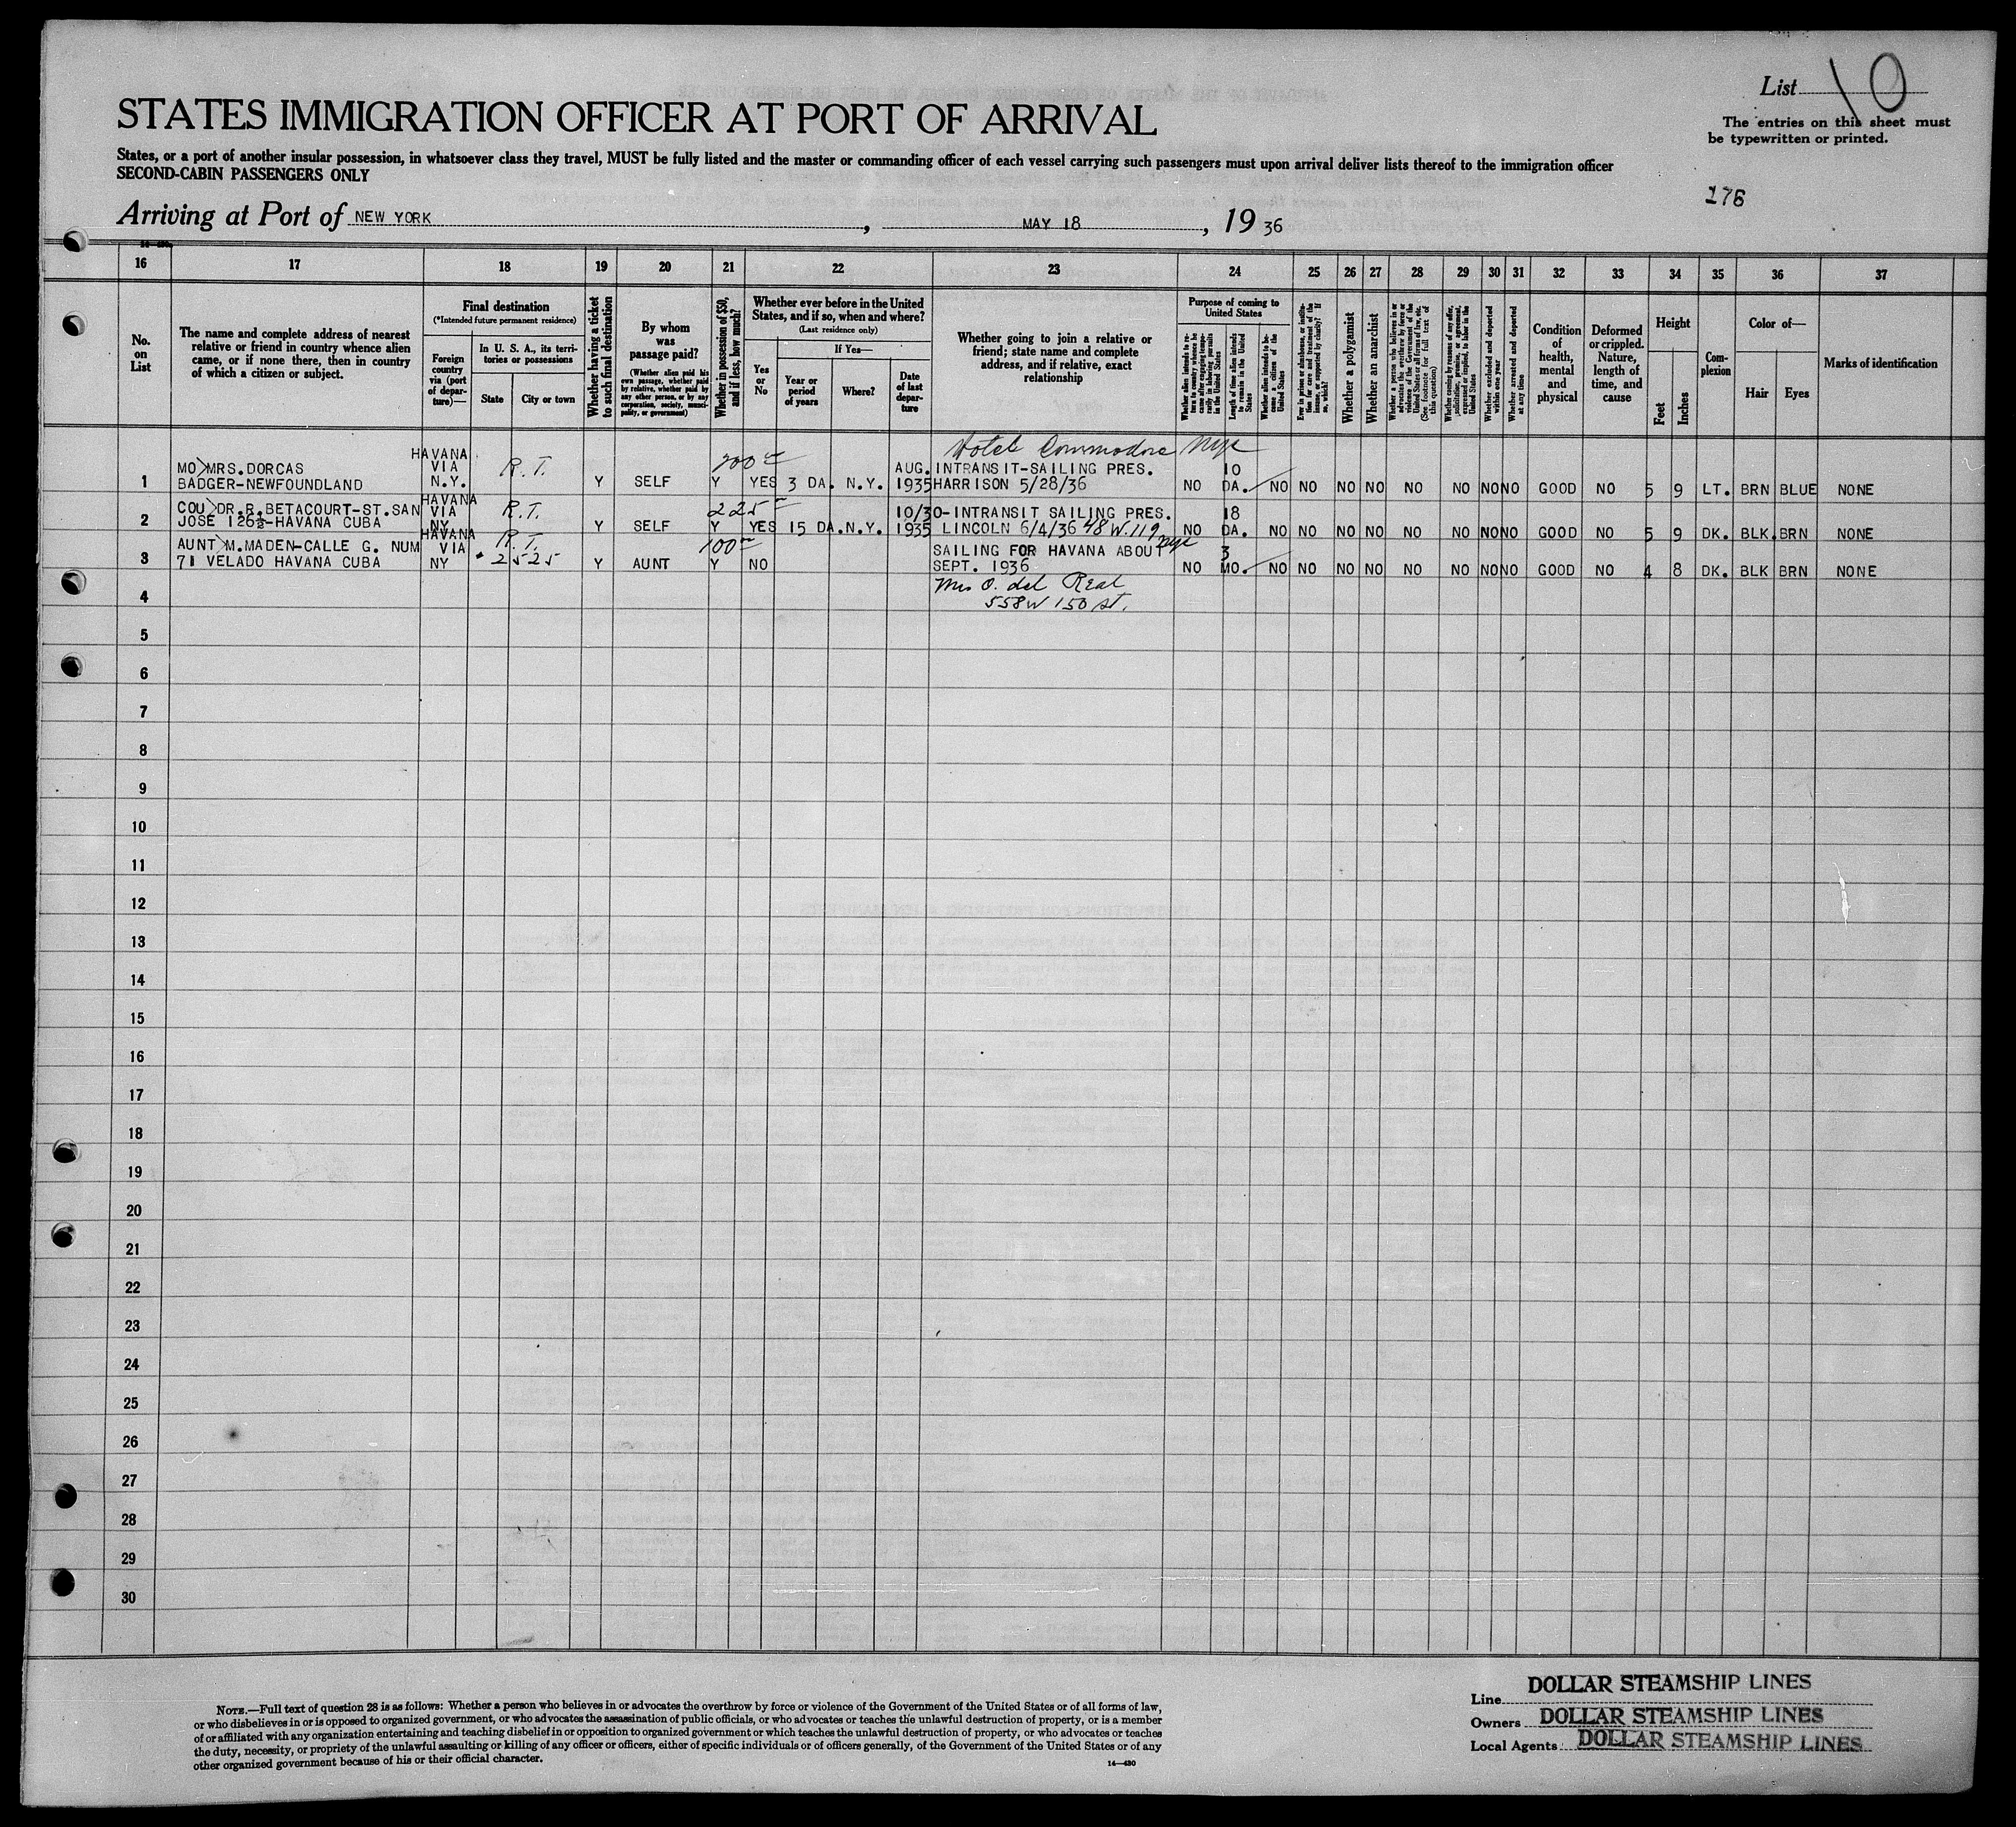 List 10
The entries on this sheet must
be typewritten or printed.
STATES IMMIGRATION OFFICER AT PORT OF ARRIVAL
States, or a port of another insular possession, in whatsoever class they travel, MUST be fully listed and the master or commanding officer of each vessel carrying such passengers must upon arrival deliver lists thereof to the immigration officer
SECOND-CABIN PASSENGERS ONLY
176
Arriving at Port of NEW YORK, MAY 18, 19 36
16 17 18 19 20 21 22 23 24 25 26 27 28 29 30 31 32 33 34 35 36 37
No. on List
The name and complete address of nearest
relative or friend in country whence alien
came, or if none there, then in country
of which a citizen or subject.
Final destination
(*Intended future permanent residence)
Foreign country via (port of departure)—
In U. S. A., its territories or possessions
State
City or town
Whether having a ticket to such final destination
By whom was passage paid?
(Whether alien paid his own passage, whether paid by relative, whether paid by any other person, or by any corporation, society, municipality, or government)
Whether in possession of $50, and if less, how much?
Whether ever before in the United States, and if so, when and where?
(Last residence only)
Yes or No
If Yes—
Year or period of years
Where?
Date of last departure
Whether going to join a relative or
friend; state name and complete
address, and if relative, exact
relationship
Purpose of coming to United States
Whether alien intends to return to country whence he came after engaging temporarily in laboring pursuits in the United States
Length of time alien intends to remain in the United States
Whether alien intends to become a citizen of the United States
Ever in prison or almshouse, or institution for care and treatment of the insane, or supported by charity? If so, which?
Whether a polygamist
Whether an anarchist
Whether a person who believes in or advocates the overthrow by force or violence of the Government of the United States or all forms of law, etc. (See footnote for full text of this question)
Whether coming by reasons of any offer, solicitation, promise, or agreement, expressed or implied, to labor in the United States
Whether excluded and deported within one year
Whether arrested and deported at any time
Condition of health, mental and physical
Deformed or crippled. Nature, length of time, and cause
Height
Feet
Inches
Complexion
Color of—
Hair
Eyes
Marks of identification
HAVANA 200 Hotel Commodore Nyc
MO>MRS. DORCAS VIA R.T. AUG. INTRANSIT-SAILING PRES. 10
1 BADGER-NEWFOUNDLAND N.Y. Y SELF Y YES 3 DA. N.Y. 1935 HARRISON 5/28/36 NO DA. NO NO NO NO NO NO NO NO GOOD NO 5 9 LT. BRN BLUE NONE
COU>DR.R.BETACOURT-ST.SAN HAVANA VIA R.T. 225 10/30-INTRANSIT SAILING PRES. 18
2 JOSE 126½-HAVANA CUBA NY Y SELF Y YES 15 DA. N.Y. 1935 LINCOLN 6/4/36 48 W. 119 Nyc NO DA. NO NO NO NO NO NO NO NO GOOD NO 5 9 DK. BLK. BRN NONE
AUNT>M.MADEN-CALLE G. NUM HAVANA VIA R.T. 100 SAILING FOR HAVANA ABOUT 3
3 71 VELADO HAVANA CUBA NY 2525 Y AUNT Y NO SEPT. 1936 NO MO. NO NO NO NO NO NO NO NO GOOD NO 4 8 DK. BLK BRN NONE
4 Mrs O. del Real
558 W 150 St.
5
6
7
8
9
10
11
12
13
14
15
16
17
18
19
20
21
22
23
24
25
26
27
28
29
30
NOTE.—Full text of question 28 is as follows: Whether a person who believes in or advocates the overthrow by force or violence of the Government of the United States or of all forms of law,
or who disbelieves in or is opposed to organized government, or who advocates the assassination of public officials, or who advocates or teaches the unlawful destruction of property, or is a member
of or affiliated with any organization entertaining and teaching disbelief in or opposition to organized government or which teaches the unlawful destruction of property, or who advocates or teaches
the duty, necessity, or propriety of the unlawful assaulting or killing of any officer or officers, either of specific individuals or of officers generally, of the Government of the United States or of any
other organized government because of his or their official character.
14—430
Line DOLLAR STEAMSHIP LINES
Owners DOLLAR STEAMSHIP LINES
Local Agents DOLLAR STEAMSHIP LINES